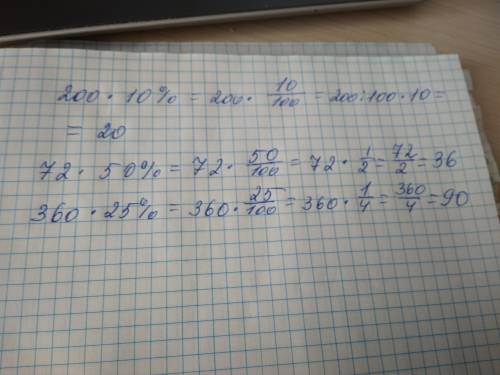 200 · 10% = 200 · 10/100 = 200:100·10 =
= 20
72 · 50% = 72 · 50/100 = 72 · 1/2 = 72/2 = 36
360 · 25% = 360 · 25/100 = 360 · 1/4 = 360/4 = 90